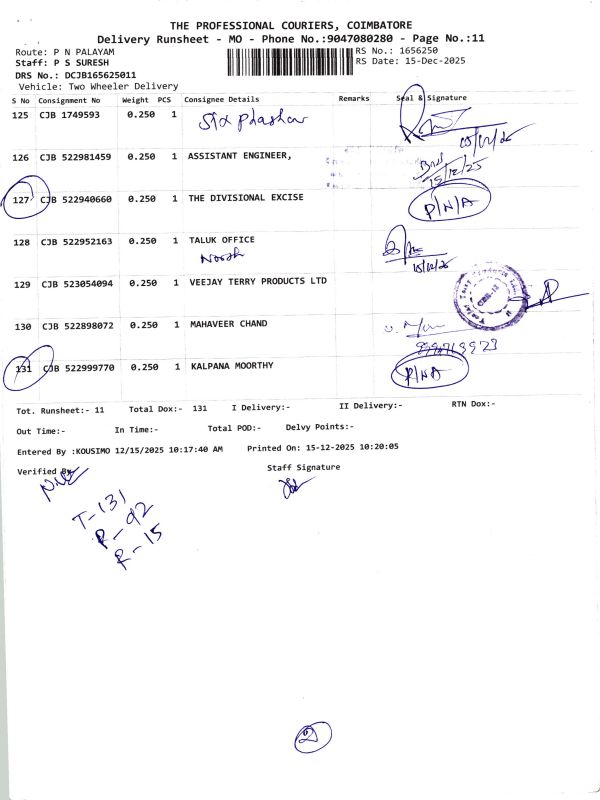 THE PROFESSIONAL COURIERS, COIMBATORE
Delivery Runsheet - MO - Phone No.:9047080280 - Page No.:11
Route: P N PALAYAM
RS No.: 1656250
Staff: P S SURESH
RS Date: 15-Dec-2025
DRS No.: DCJB165625011
Vehicle: Two Wheeler Delivery
S No Consignment No Weight PCS Consignee Details Remarks Seal & Signature
125 CJB 1749593 0.250 1
126 CJB 522981459 0.250 1 ASSISTANT ENGINEER,
15/12/25
127 CJB 522940660 0.250 1 THE DIVISIONAL EXCISE P/N/A
128 CJB 522952163 0.250 1 TALUK OFFICE
129 CJB 523054094 0.250 1 VEEJAY TERRY PRODUCTS LTD
130 CJB 522898072 0.250 1 MAHAVEER CHAND
131 CJB 522999770 0.250 1 KALPANA MOORTHY P/N/A
Tot. Runsheet:- 11 Total Dox:- 131 I Delivery:- II Delivery:- RTN Dox:-
Out Time:- In Time:- Total POD:- Delvy Points:-
Entered By :KOUSIMO 12/15/2025 10:17:40 AM Printed On: 15-12-2025 10:20:05
Verified By Staff Signature
T-131
P-92
R-15
2